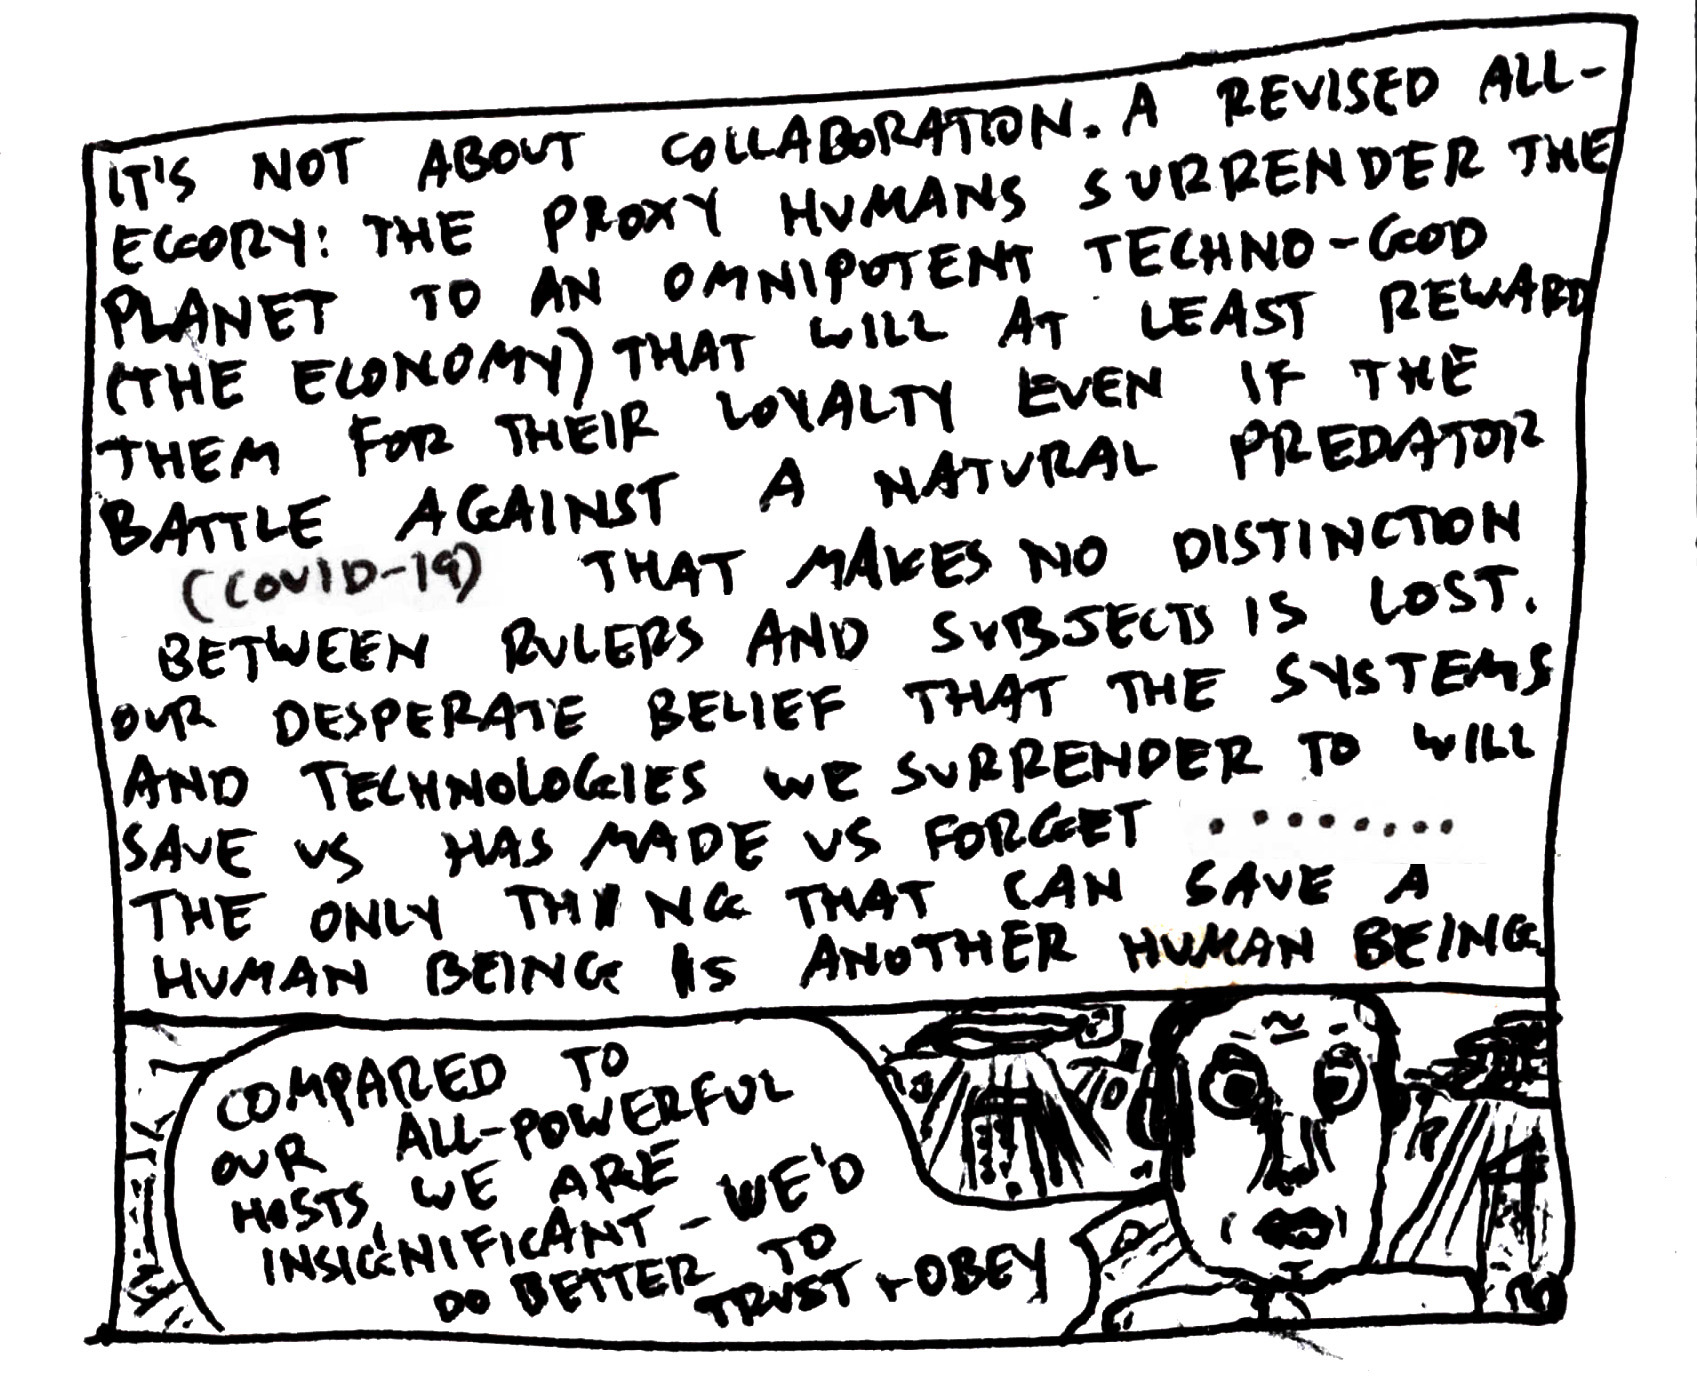 IT'S NOT ABOUT COLLABORATION. A REVISED ALL-
EGORY: THE PROXY HUMANS SURRENDER THE
PLANET TO AN OMNIPOTENT TECHNO-GOD
(THE ECONOMY) THAT WILL AT LEAST REWARD
THEM FOR THEIR LOYALTY EVEN IF THE
BATTLE AGAINST A NATURAL PREDATOR
(COVID-19) THAT MAKES NO DISTINCTION
BETWEEN RULERS AND SUBJECTS IS LOST.
OUR DESPERATE BELIEF THAT THE SYSTEMS
AND TECHNOLOGIES WE SURRENDER TO WILL
SAVE US HAS MADE US FORGET ........
THE ONLY THING THAT CAN SAVE A
HUMAN BEING IS ANOTHER HUMAN BEING.
COMPARED TO
OUR ALL-POWERFUL
HOSTS, WE ARE
INSIGNIFICANT - WE'D
DO BETTER TO
TRUST + OBEY